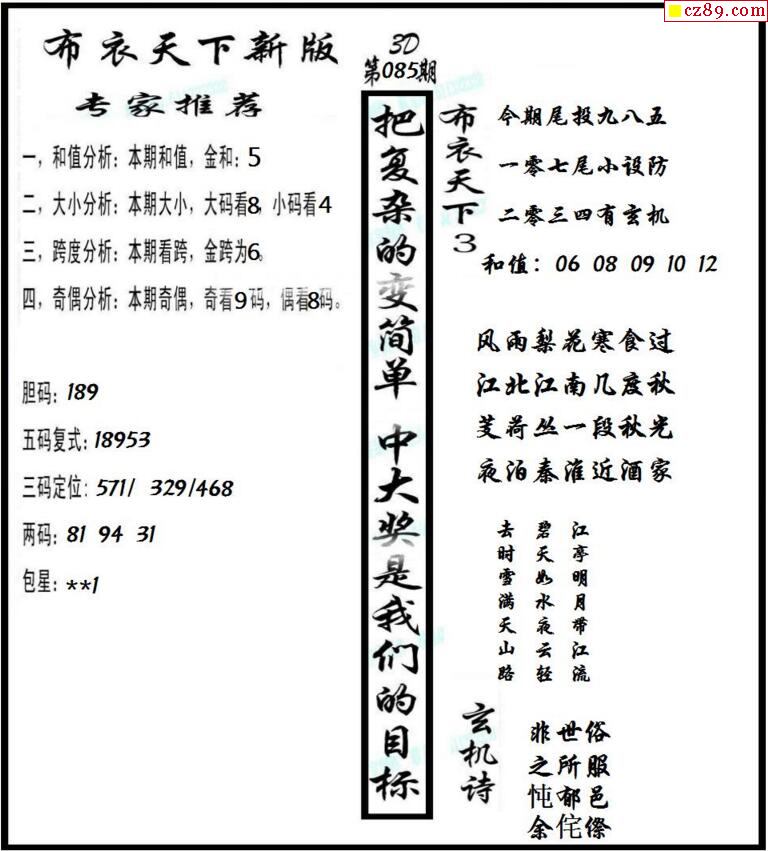 cz89.com
布衣天下新版
专家推荐
一，和值分析：本期和值，金和：5
二，大小分析：本期大小，大码看8，小码看4
三，跨度分析：本期看跨，金跨为6。
四，奇偶分析：本期奇偶，奇看9码，偶看8码。
胆码：189
五码复式：18953
三码定位：571/ 329/468
两码：81 94 31
包星：**1
3D
第085期
把复杂的变简单 中大奖是我们的目标
布衣天下3
今期尾投九八五
一零七尾小设防
二零三四有玄机
和值：06 08 09 10 12
风雨梨花寒食过
江北江南几度秋
芰荷丛一段秋光
夜泊秦淮近酒家
江亭明月带江流
碧天如水夜云轻
去时雪满天山路
玄机诗
非世俗
之所服
忳郁邑
余侘傺